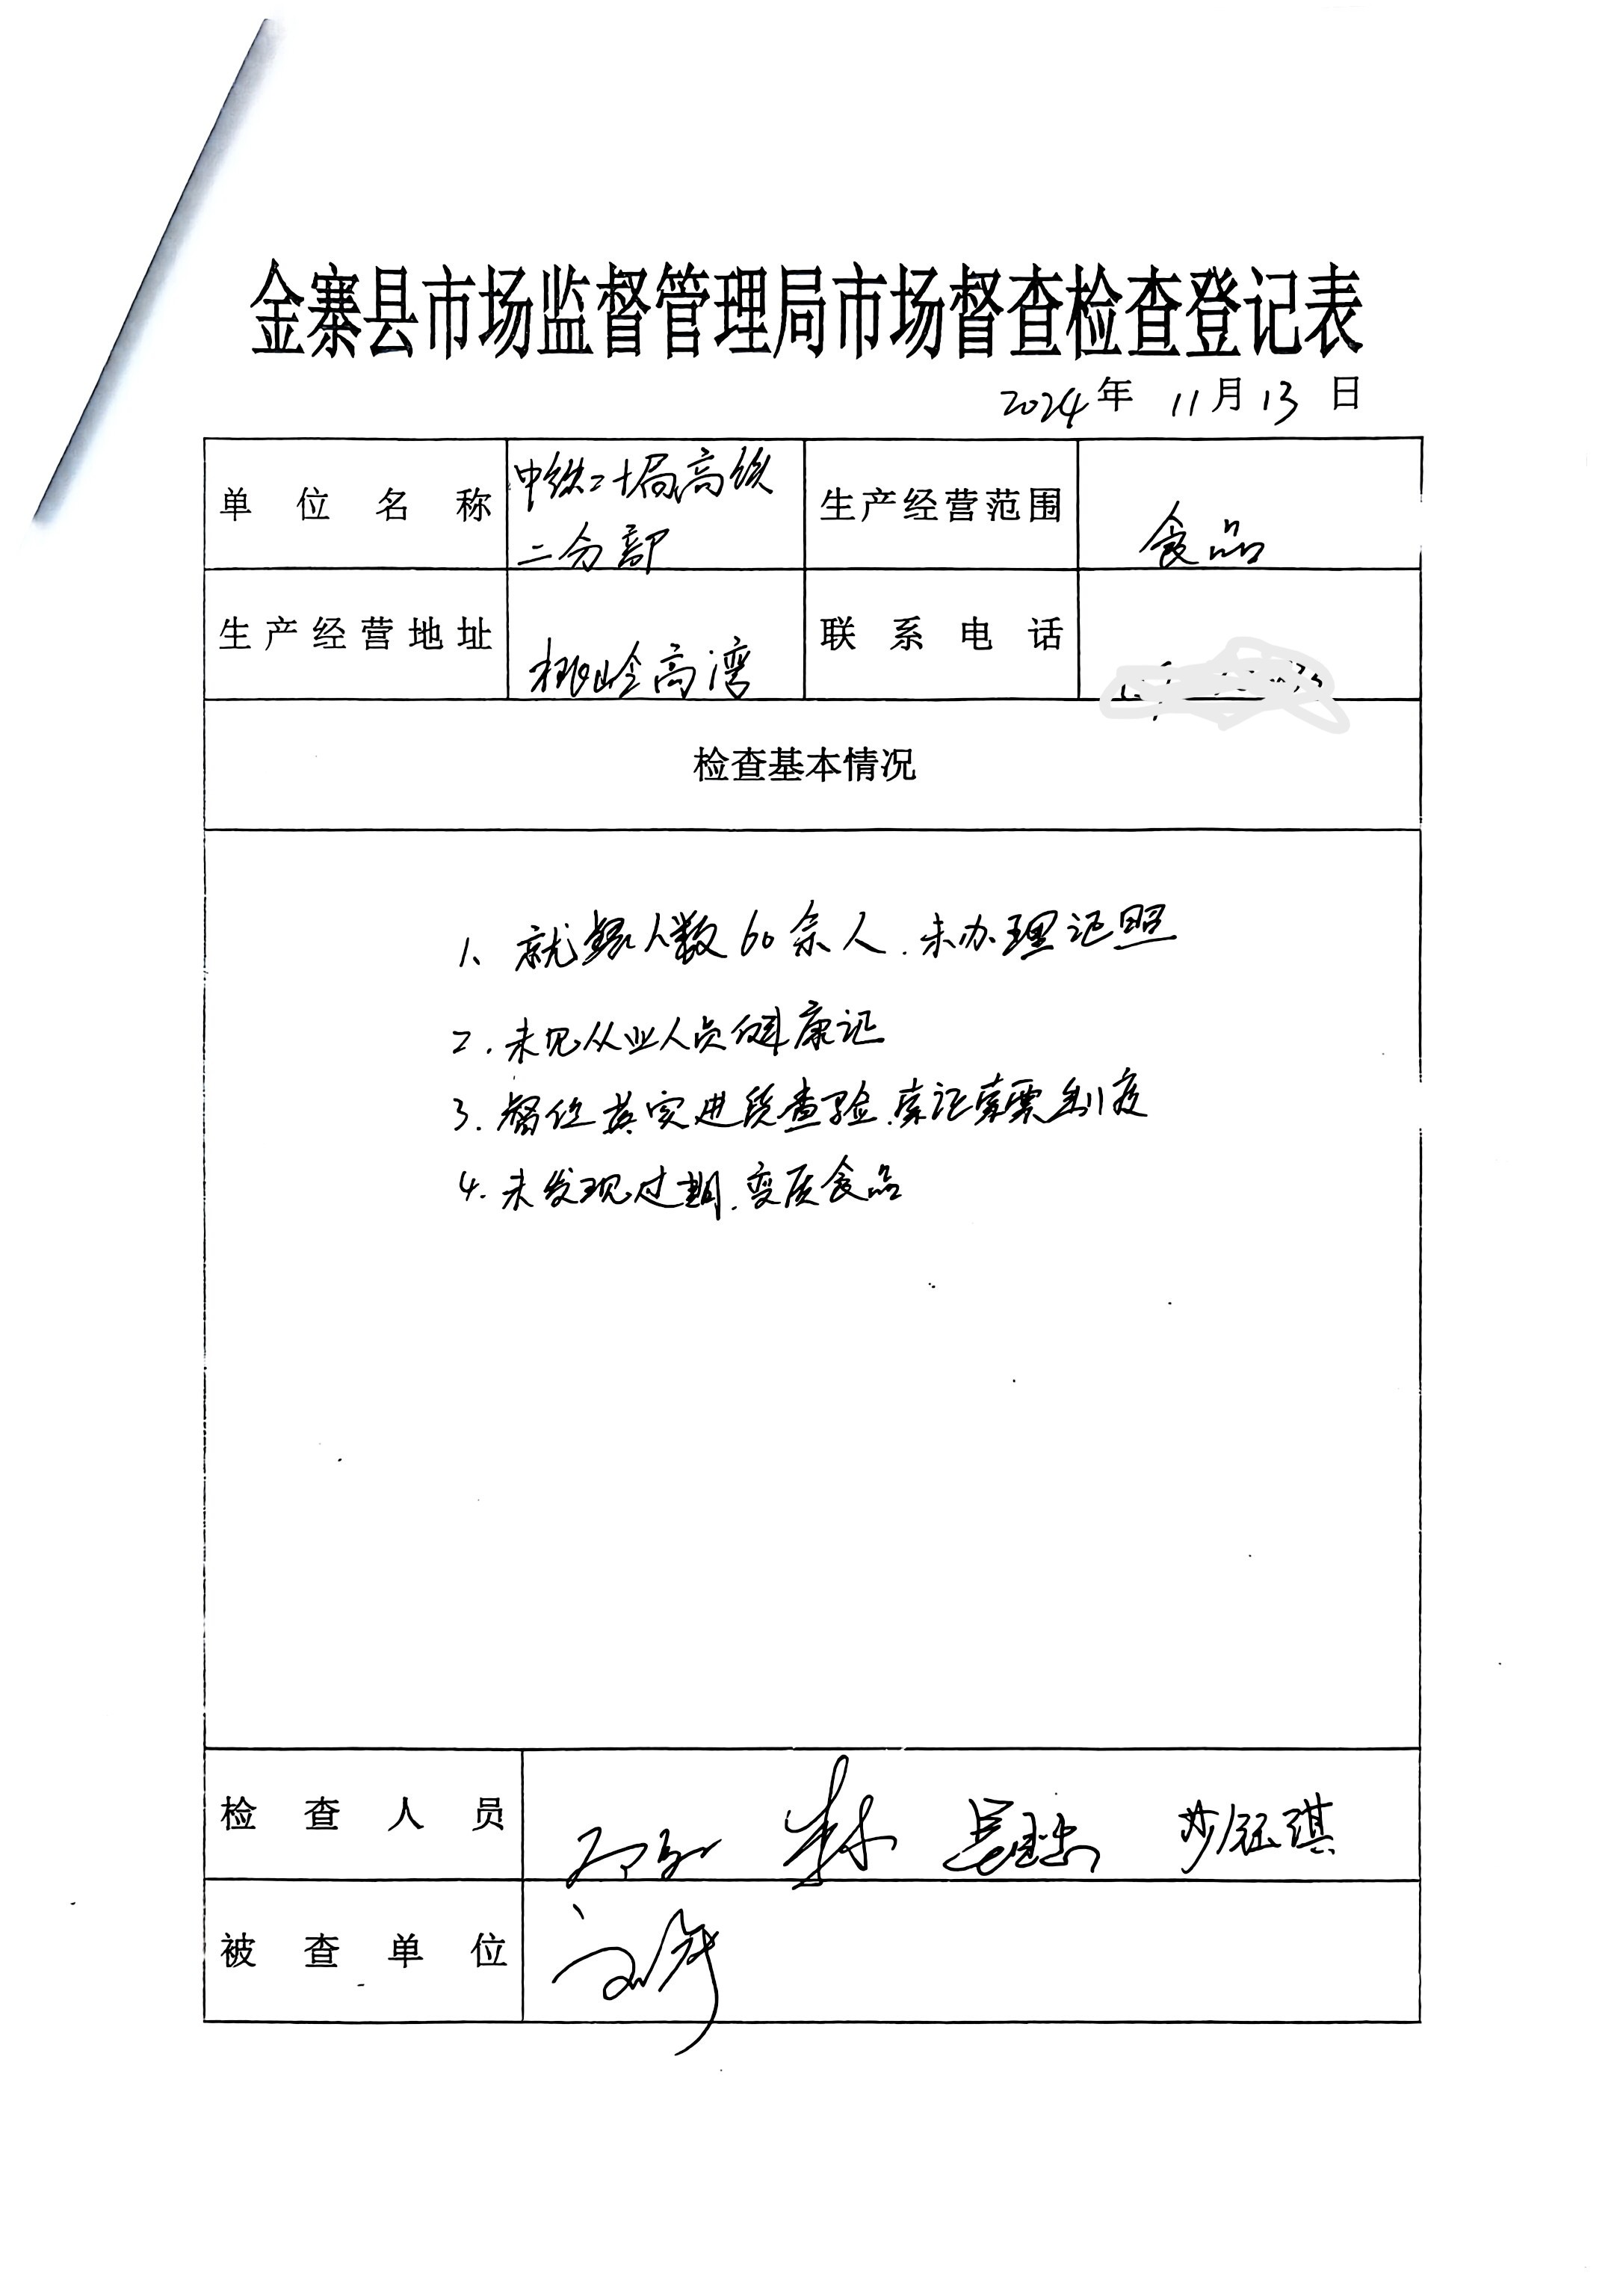 金寨县市场监督管理局市场督查检查登记表
2024年 11月13日
单位名称 中铁二十局高铁二分部 生产经营范围 食品
生产经营地址 桃岭高湾 联系电话
检查基本情况
1、就餐人数60余人.未办理证照
2.未见从业人员健康证
3.督促落实进货查验.索证索票制度
4.未发现过期.变质食品
检查人员
被查单位